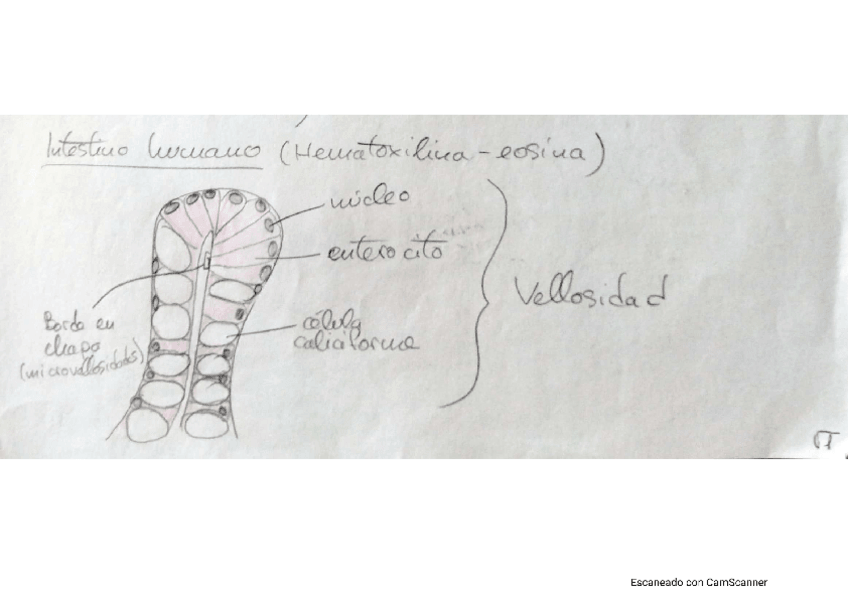 Intestino humano (Hematoxilina-eosina)
núcleo
enterocito
Vellosidad
Borde en
chapa
(microvellosidades)
célula
caliciforme
Escaneado con CamScanner